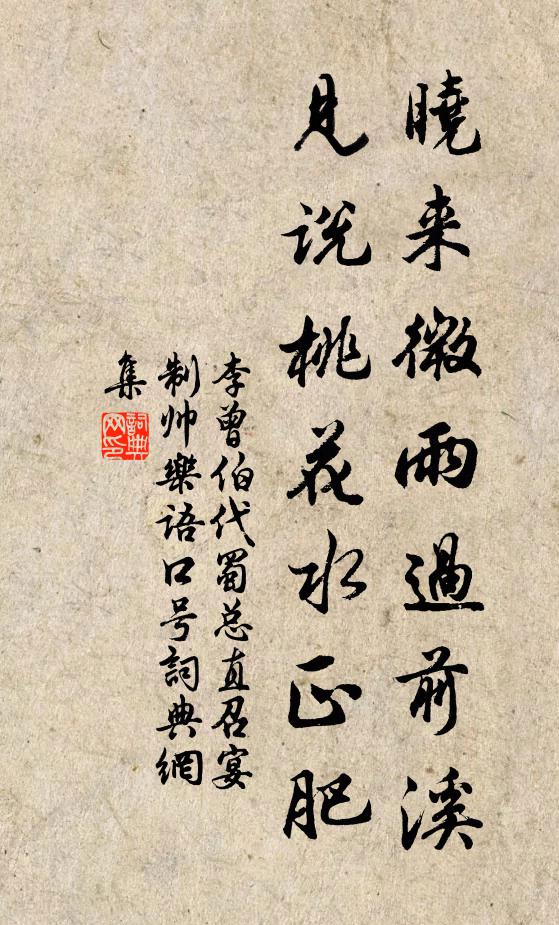 曉来微雨過前溪
見说桃花水正肥
李曾伯代蜀总直召宴
制帅樂语口号詞典網
集
詞典网印